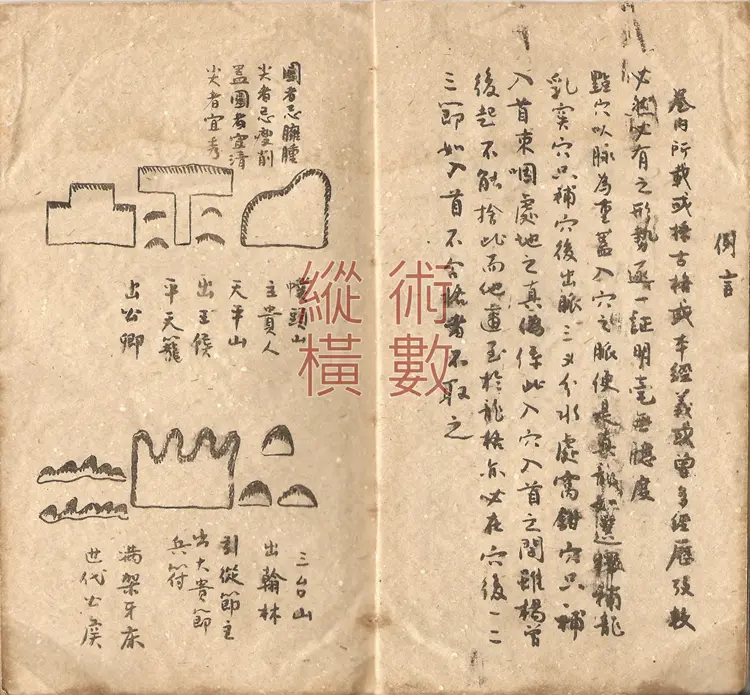 例言
卷内所載或採古格或本經義或曾經歷
必然必有之形勢逐一証明毫無臆度
點穴以脈為重蓋入穴之脈便是真龍如選擇補龍
乳突穴只補穴後出脈三义分水處窩鉗穴只補
入首束咽處地之真偽係此入穴入首之間雖楊曾
後起不能捨此而他適至於龍格亦必在穴後一二
三節如入首不合格者不取之
圓者忌臃腫
尖者忌瘦削
蓋圓者宜清
尖者宜秀
幞頭山
主貴人
天平山
出王侯
平天籠
出公卿
三台山
出翰林
引從節主
出大貴節
兵符
滿架牙床
世代公侯
術數
縱橫